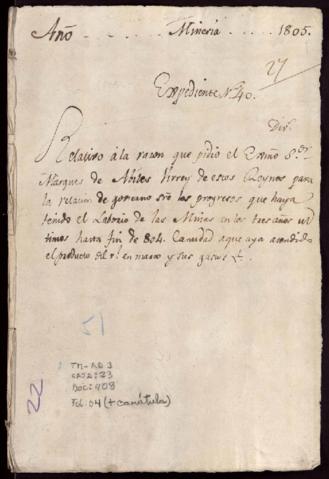 Año Mineria 1805.
27
Expediente N.º 40.
Dir.
Relativo á la razon que pidió el Exmô S.or
Marques de Abiles Virrey de estos Reynos para
la relacion de govierno sre los progresos que haya
tenido el Laborio de las Minas en los tres años ul
timos hasta fin de 804. Cantidad a que aya asendido
el producto del rl. en marco y sus gastos &.
51
TM-AD 3
CAJA: 23
DOC: 908
Fol: 04 (+ carátula)
22